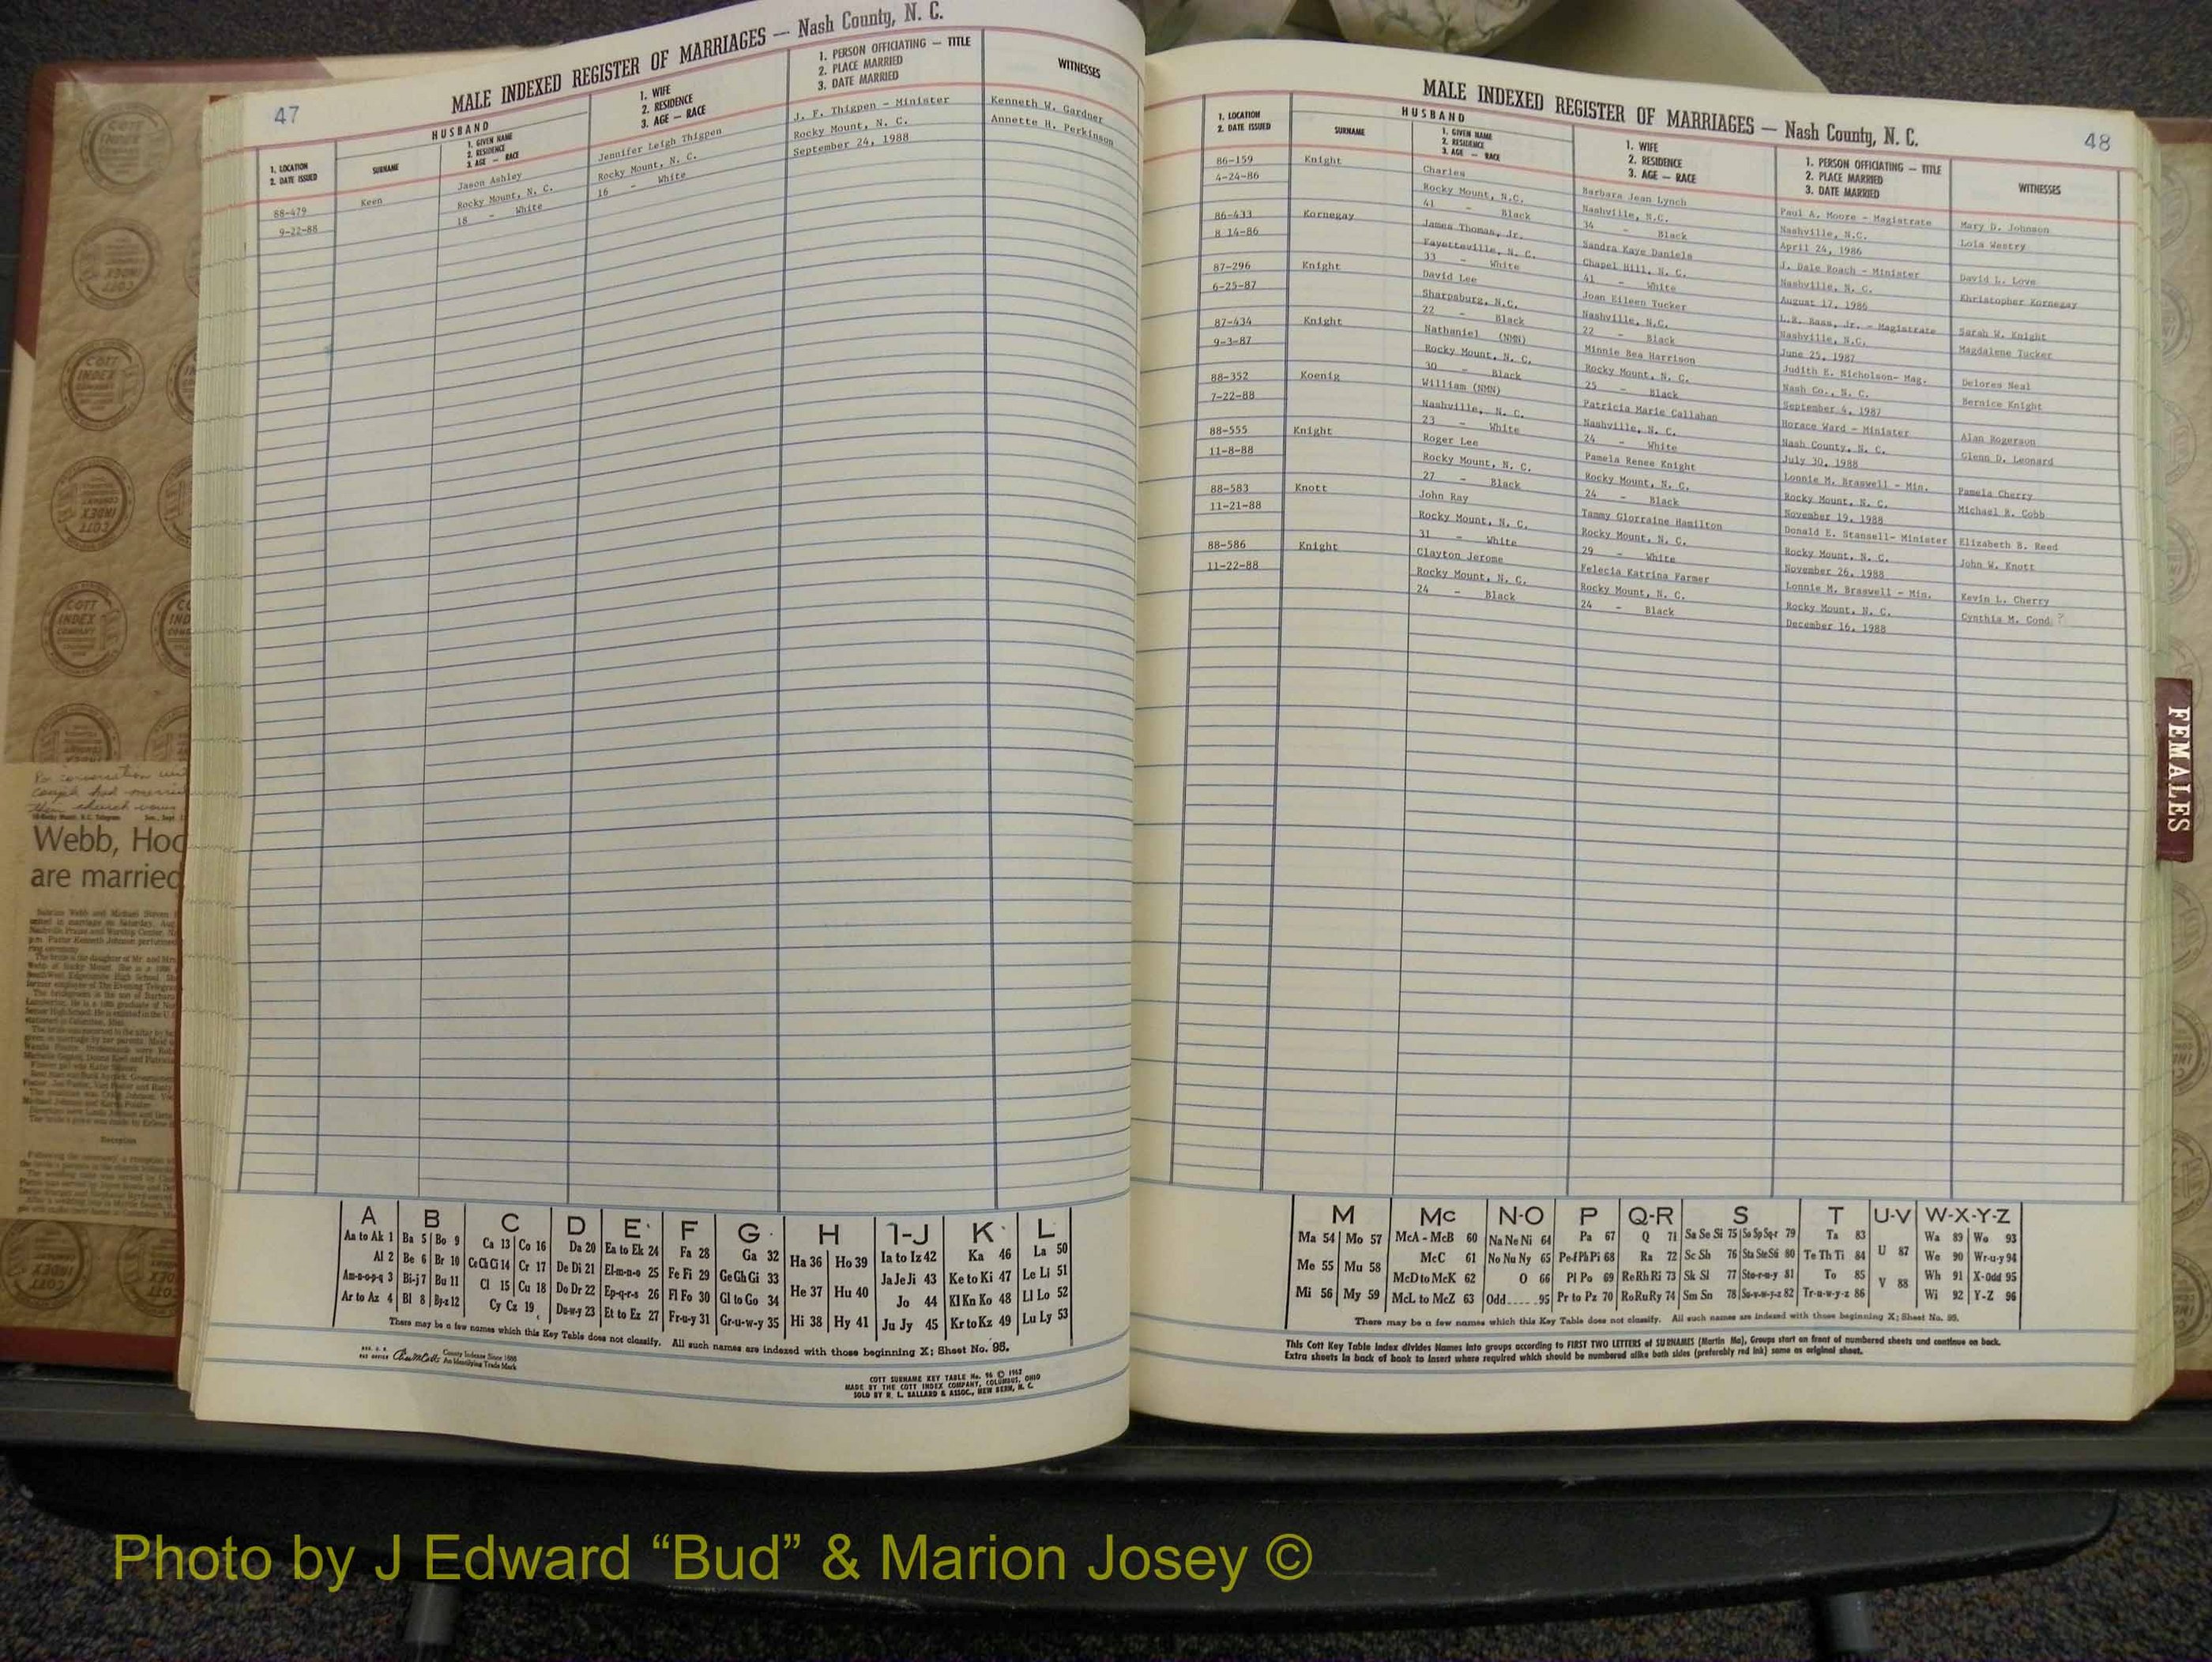 47
MALE INDEXED REGISTER OF MARRIAGES — Nash County, N. C.
1. LOCATION
2. DATE ISSUED
HUSBAND
SURNAME
1. GIVEN NAME
2. RESIDENCE
3. AGE — RACE
1. WIFE
2. RESIDENCE
3. AGE — RACE
1. PERSON OFFICIATING — TITLE
2. PLACE MARRIED
3. DATE MARRIED
WITNESSES
88-479 Keen Jason Ashley Jennifer Leigh Thigpen J. F. Thigpen - Minister Kenneth W. Gardner
9-22-88 Rocky Mount, N. C. Rocky Mount, N. C. Rocky Mount, N. C. Annette H. Perkinson
18 - White 16 - White September 24, 1988
A B C D E F G H I-J K L
Aa to Ak 1 Ba 5 Bo 9 Ca 13 Co 16 Da 20 Ea to Ek 24 Fa 28 Ga 32 Ha 36 Ho 39 Ia to Iz 42 Ka 46 La 50
Al 2 Be 6 Br 10 Ce Ch Ci 14 Cr 17 De Di 21 El-m-n-o 25 Fe Fi 29 Ge Gh Gi 33 He 37 Hu 40 Ja Je Ji 43 Ke to Ki 47 Le Li 51
Am-n-o-p-q 3 Bi-j 7 Bu 11 Cl 15 Cu 18 Do Dr 22 Ep-q-r-s 26 Fl Fo 30 Gl to Go 34 Hi 38 Hy 41 Jo 44 Kl Kn Ko 48 Ll Lo 52
Ar to Az 4 Bl 8 By-z 12 Cy Cz 19 Du-w-y 23 Et to Ez 27 Fr-u-y 31 Gr-u-w-y 35 Ju Jy 45 Kr to Kz 49 Lu Ly 53
There may be a few names which this Key Table does not classify. All such names are indexed with those beginning X; Sheet No. 95.
County Indexes Since 1888
An Identifying Trade Mark
COTT SURNAME KEY TABLE No. 96 © 1962
MADE BY THE COTT INDEX COMPANY, COLUMBUS, OHIO
SOLD BY R. L. BALLARD & ASSOC., NEW BERN, N. C.
48
MALE INDEXED REGISTER OF MARRIAGES — Nash County, N. C.
1. LOCATION
2. DATE ISSUED
HUSBAND
SURNAME
1. GIVEN NAME
2. RESIDENCE
3. AGE — RACE
1. WIFE
2. RESIDENCE
3. AGE — RACE
1. PERSON OFFICIATING — TITLE
2. PLACE MARRIED
3. DATE MARRIED
WITNESSES
86-159 Knight Charles Barbara Jean Lynch Paul A. Moore - Magistrate Mary D. Johnson
4-24-86 Rocky Mount, N.C. Nashville, N.C. Nashville, N.C. Lois Westry
41 - Black 34 - Black April 24, 1986
86-433 Kornegay James Thomas, Jr. Sandra Kaye Daniels J. Dale Roach - Minister David L. Love
8 14-86 Fayetteville, N. C. Chapel Hill, N. C. Nashville, N. C. Khristopher Kornegay
33 - White 41 - White August 17, 1986
87-296 Knight David Lee Joan Eileen Tucker L.R. Bass, Jr. - Magistrate Sarah W. Knight
6-25-87 Sharpsburg, N.C. Nashville, N.C. Nashville, N.C. Magdalene Tucker
22 - Black 22 - Black June 25, 1987
87-434 Knight Nathaniel (NMN) Minnie Bea Harrison Judith E. Nicholson- Mag. Delores Neal
9-3-87 Rocky Mount, N. C. Rocky Mount, N. C. Nash Co., N. C. Bernice Knight
30 - Black 25 - Black September 4, 1987
88-352 Koenig William (NMN) Patricia Marie Callahan Horace Ward - Minister Alan Rogerson
7-22-88 Nashville, N. C. Nashville, N. C. Nash County, N. C. Glenn D. Leonard
23 - White 24 - White July 30, 1988
88-555 Knight Roger Lee Pamela Renee Knight Lonnie M. Braswell - Min. Pamela Cherry
11-8-88 Rocky Mount, N. C. Rocky Mount, N. C. Rocky Mount, N. C. Michael R. Cobb
27 - Black 24 - Black November 19, 1988
88-583 Knott John Ray Tammy Glorraine Hamilton Donald E. Stansell- Minister Elizabeth B. Reed
11-21-88 Rocky Mount, N. C. Rocky Mount, N. C. Rocky Mount, N. C. John W. Knott
31 - White 29 - White November 26, 1988
88-586 Knight Clayton Jerome Felecia Katrina Farmer Lonnie M. Braswell - Min. Kevin L. Cherry
11-22-88 Rocky Mount, N. C. Rocky Mount, N. C. Rocky Mount, N. C. Cynthia M. Cond ?
24 - Black 24 - Black December 16, 1988
M Mc N-O P Q-R S T U-V W-X-Y-Z
Ma 54 Mo 57 McA - McB 60 Na Ne Ni 64 Pa 67 Q 71 Sa Se Si 75 So Sp Sq-r 79 Ta 83 U 87 Wa 89 Wo 93
Me 55 Mu 58 McC 61 No Nu Ny 65 Pe-f Ph Pi 68 Ra 72 Sc Sh 76 Sta Ste Sti 80 Te Th Ti 84 V 88 We 90 Wr-u-y 94
Mi 56 My 59 McD to McK 62 O 66 Pl Po 69 Re Rh Ri 73 Sk Sl 77 Sto-r-u-y 81 To 85 Wh 91 X-Odd 95
McL to McZ 63 Odd 95 Pr to Pz 70 Ro Ru Ry 74 Sm Sn 78 Su-v-w-y-z 82 Tr-u-w-y-z 86 Wi 92 Y-Z 96
There may be a few names which this Key Table does not classify. All such names are indexed with those beginning X; Sheet No. 95.
This Cott Key Table Index divides Names into groups according to FIRST TWO LETTERS of SURNAMES (Martin Ma), Groups start on front of numbered sheets and continue on back.
Extra sheets in back of book to insert where required which should be numbered alike both sides (preferably red ink) same as original sheet.
FEMALES
COTT INDEX COMPANY
couple had married
Webb, Hoo
are married
Reception
Photo by J Edward “Bud” & Marion Josey ©